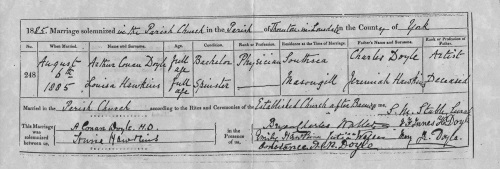 1885. Marriage solemnized in the Parish Church in the Parish of Thornton in Lonsdale in the County of York
No. When Married. Name and Surname. Age. Condition. Rank or Profession. Residence at the Time of Marriage. Father's Name and Surname. Rank or Profession of Father.
248 August 6th 1885 Arthur Conan Doyle Full age Bachelor Physician Southsea Charles Doyle Artist
Louisa Hawkins Full age Spinster Masongill Jeremiah Hawkins Deceased
Married in the Parish Church according to the Rites and Ceremonies of the Established Church after Banns by me S. R. Stable, Curate
This Marriage was solemnized between us, A Conan Doyle, M.D. Louisa Hawkins
in the Presence of us, Bryan Charles Waller
Emily Hawkins Waller Mary J. Doyle
Doyle